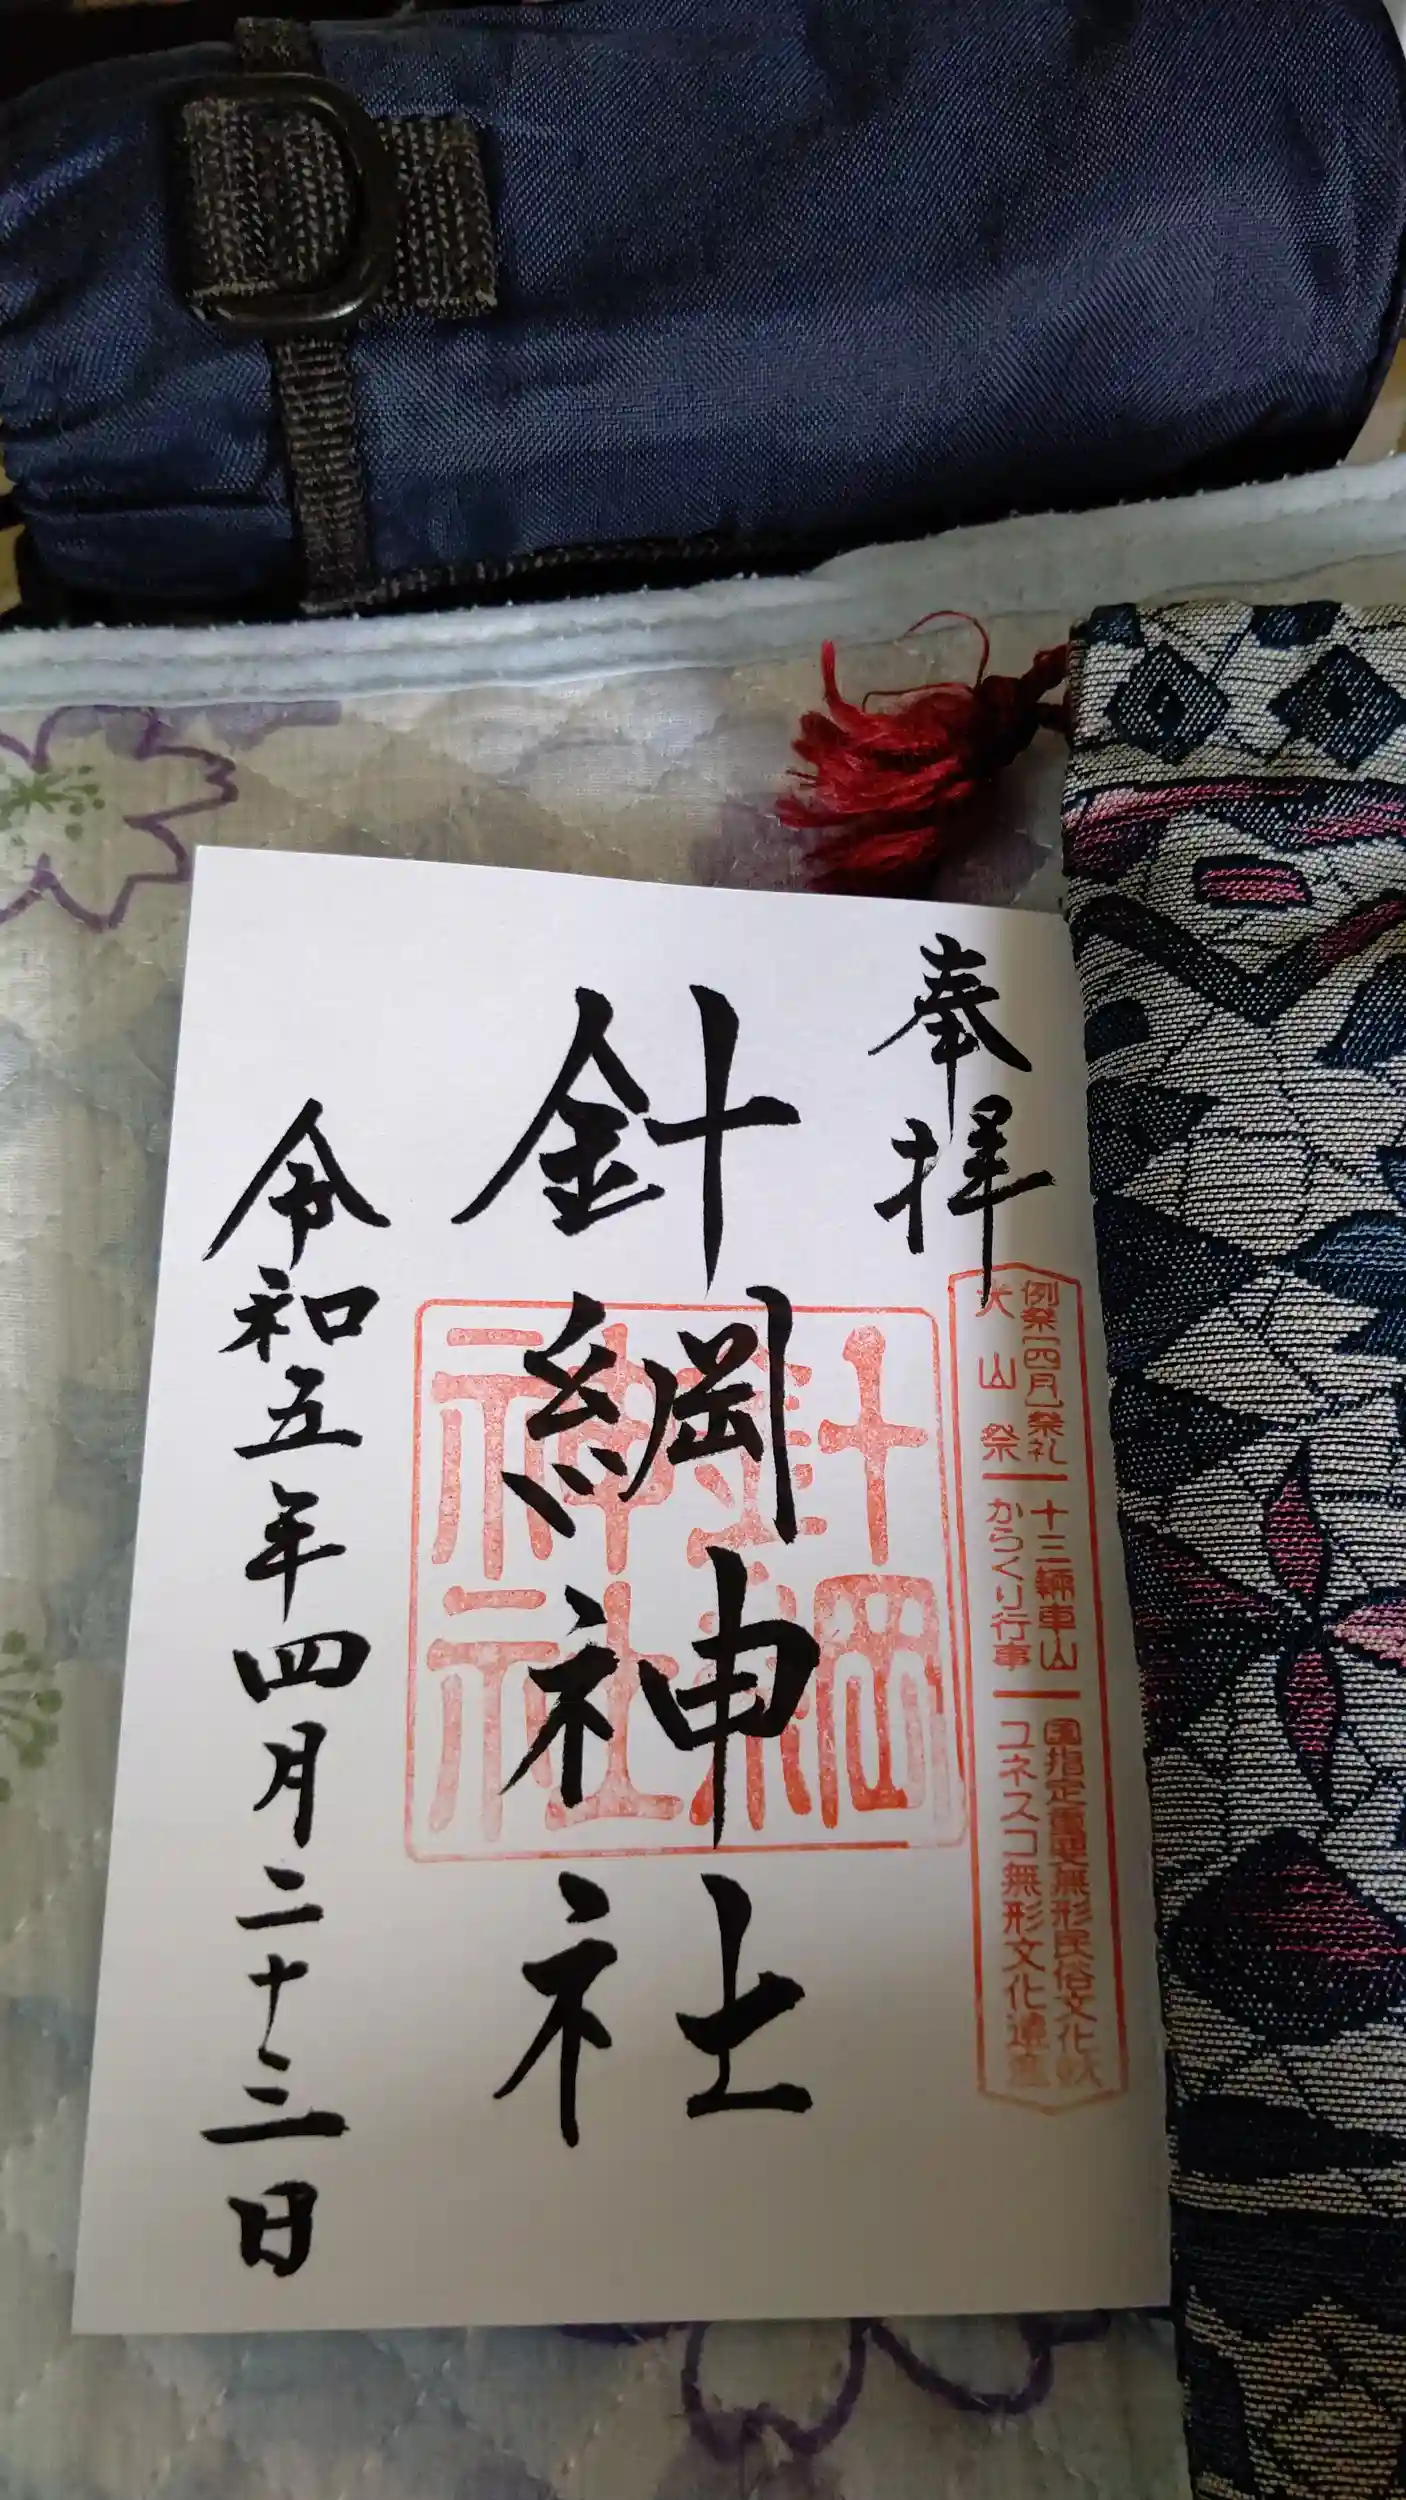 奉拝
例祭[四月]祭礼 十三輛車山 国指定重要無形民俗文化財
犬山祭 からくり行事 ユネスコ無形文化遺産
針綱神社
針綱
神社
令和五年四月二十三日